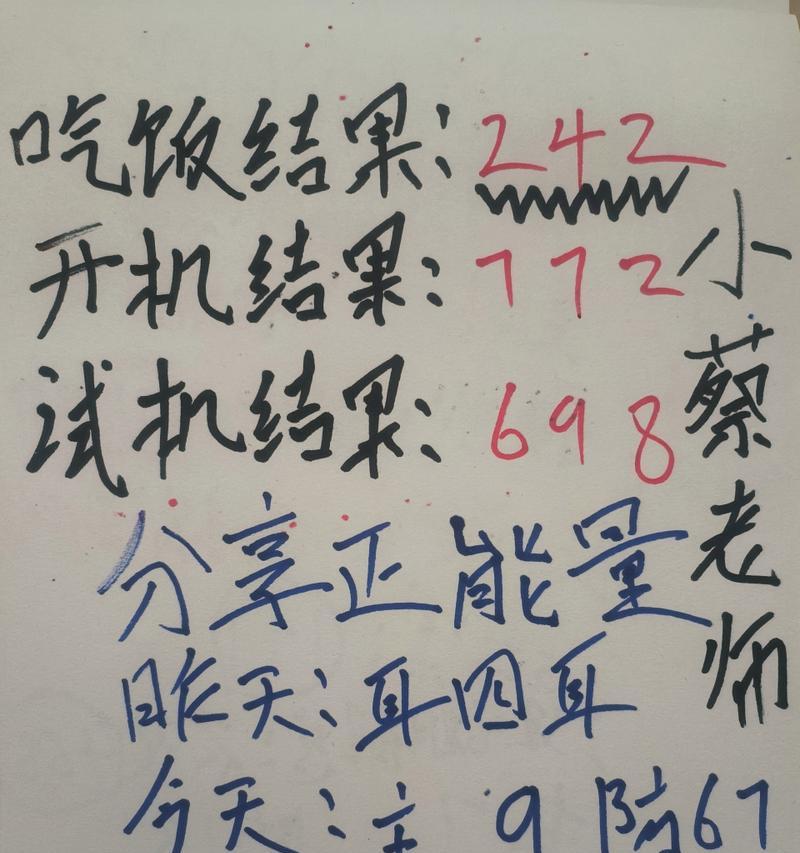 吃饭结果:242
开机结果:772
试机结果:698
小蔡老师
分享正能量
昨天:耳四耳
今天:主 9 防67